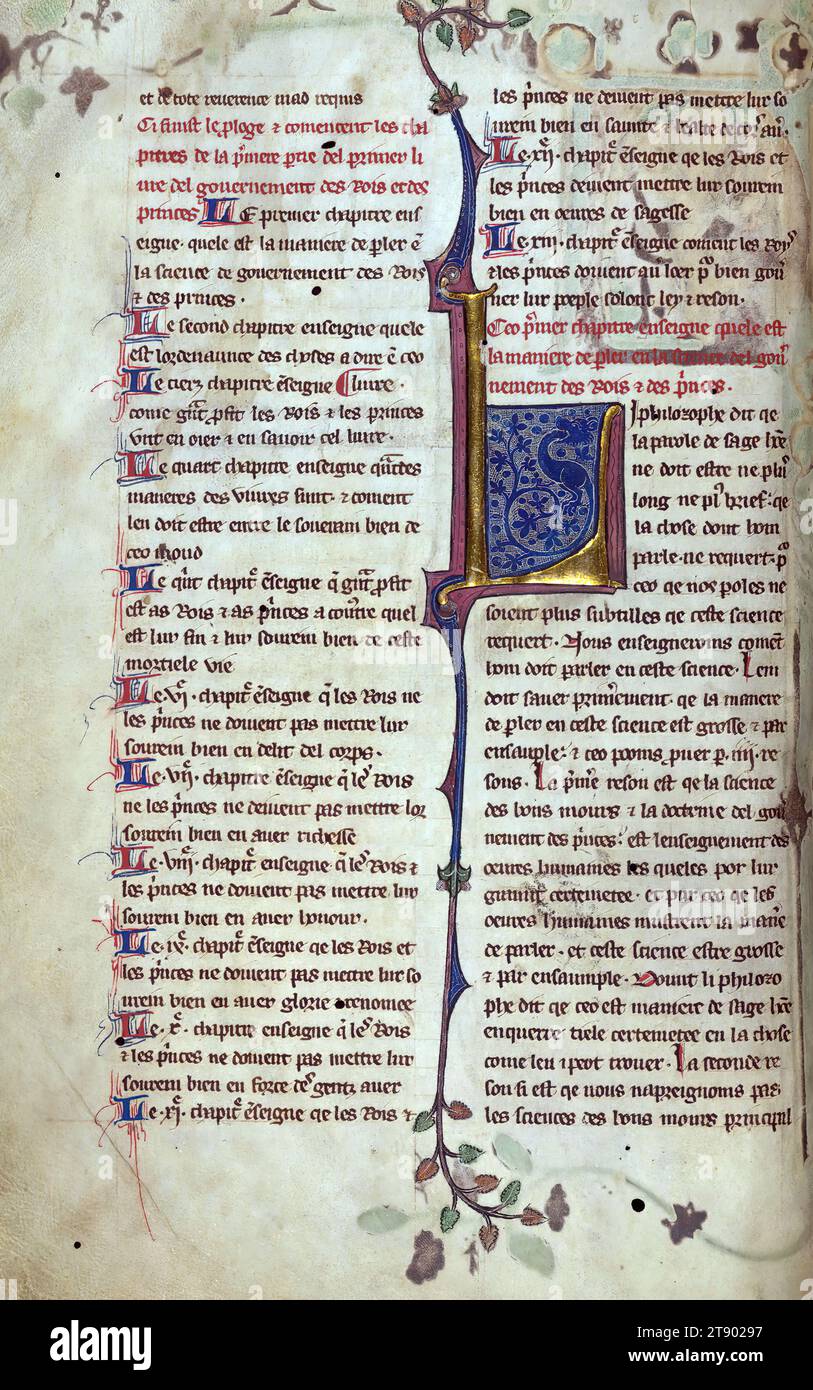 et de tote reverence mad requis
Ci finist le ploge & comencent les cha
pitres de la p'miere ptie del premier li
vre del gouvernement des Rois et des
princes. LE premier chapitre ens
eigne. quele est la maniere de pler ē
la science de gouvernement des Rois
& des princes.
Le second chapitre enseigne quele
est lordenaunce des choses a dire ē ceo
Le tierz chapitre ēseigne livre.
come gñt pfit les Rois & les princes
unt en oier & en savoir cel livre.
Le quart chapitre enseigne qñtes
maneres des vivres sunt. & coment
leu doit estre entre le soverain bien de
ceo moud
Le qint chapit' ēseigne q̄ gñt pfit
est as Rois & as p'nces a conustre quel
est lur fin & lur soverein bien de ceste
mortiele vie
Le .VI. chapit' ēseigne q̄ les Rois ne
les p'nces ne doivent pas mettre lur
soverein bien en delit del corps.
Le .VII. chapit' ēseigne q̄ les Rois
ne les p'nces ne deivent pas mettre lor
soverein bien en aver richesse
Le .VIII. chapit' enseigne q̄ les Rois &
les p'nces ne doivent pas mettre lur
soverein bien en aver honour.
Le .IX. chapit' ēseigne qe les Rois et
les p'nces ne doivent pas mettre lur so
verein bien en aver glorie & renomee
Le .X. chapitre enseigne q̄ les Rois
& les p'nces ne doivent pas mettre lur
soverein bien en force de gentz aver
Le .XI. chapit' ēseigne qe les Rois &
les p'nces ne deivent pas mettre lur so
verein bien en sainte & bealte de cors av'.
Le .XII. chapitre ēseigne qe les Rois et
les p'nces deivent mettre lur soverein
bien en oevres de sagesse
Le .XIII. chapit' ēseigne coment les Roys
& les p'nces doivent au loer p' bien gov'
ner lur poeple solonc ley & reson.
Ceo p'mier chapitre enseigne quele est
la maniere de pler en la science del gov'
nement des Rois & des p'nces.
Li philozophe dit qe
la parole de sage hōe
ne doit estre ne plus
long ne pl' brief: qe
la chose dont hom
parle. ne requert: p'
ceo qe nos poles ne
soient plus subtilles qe ceste science
requert. Nous enseigneroins comēt
hom doit parler en ceste science. Lem
doit saver prim'ement. qe la maniere
de pler en ceste science est grosse & par
ensauple: & ceo pooms p'ver p. iii. re
sons. La p'me reson est qe la science
des bons mours & la doctrine del gov'
nement des p'nces: est lenseignement des
oevres humaines les queles por lur
certemetee. et par ceo qe les
oevres humaines mustrent la man'e
de parler. et ceste science estre grosse
& par ensaumple. Dount li philozo
phe dit qe ceo est maniere de sage hōe
enquerre tiele certemetee en la chose
come leu i peot trover. La seconde re
son si est qe nous napreignoms pas
les sciences des bons mours principal
alamy
alamy
Image ID: 2T90297
www.alamy.com